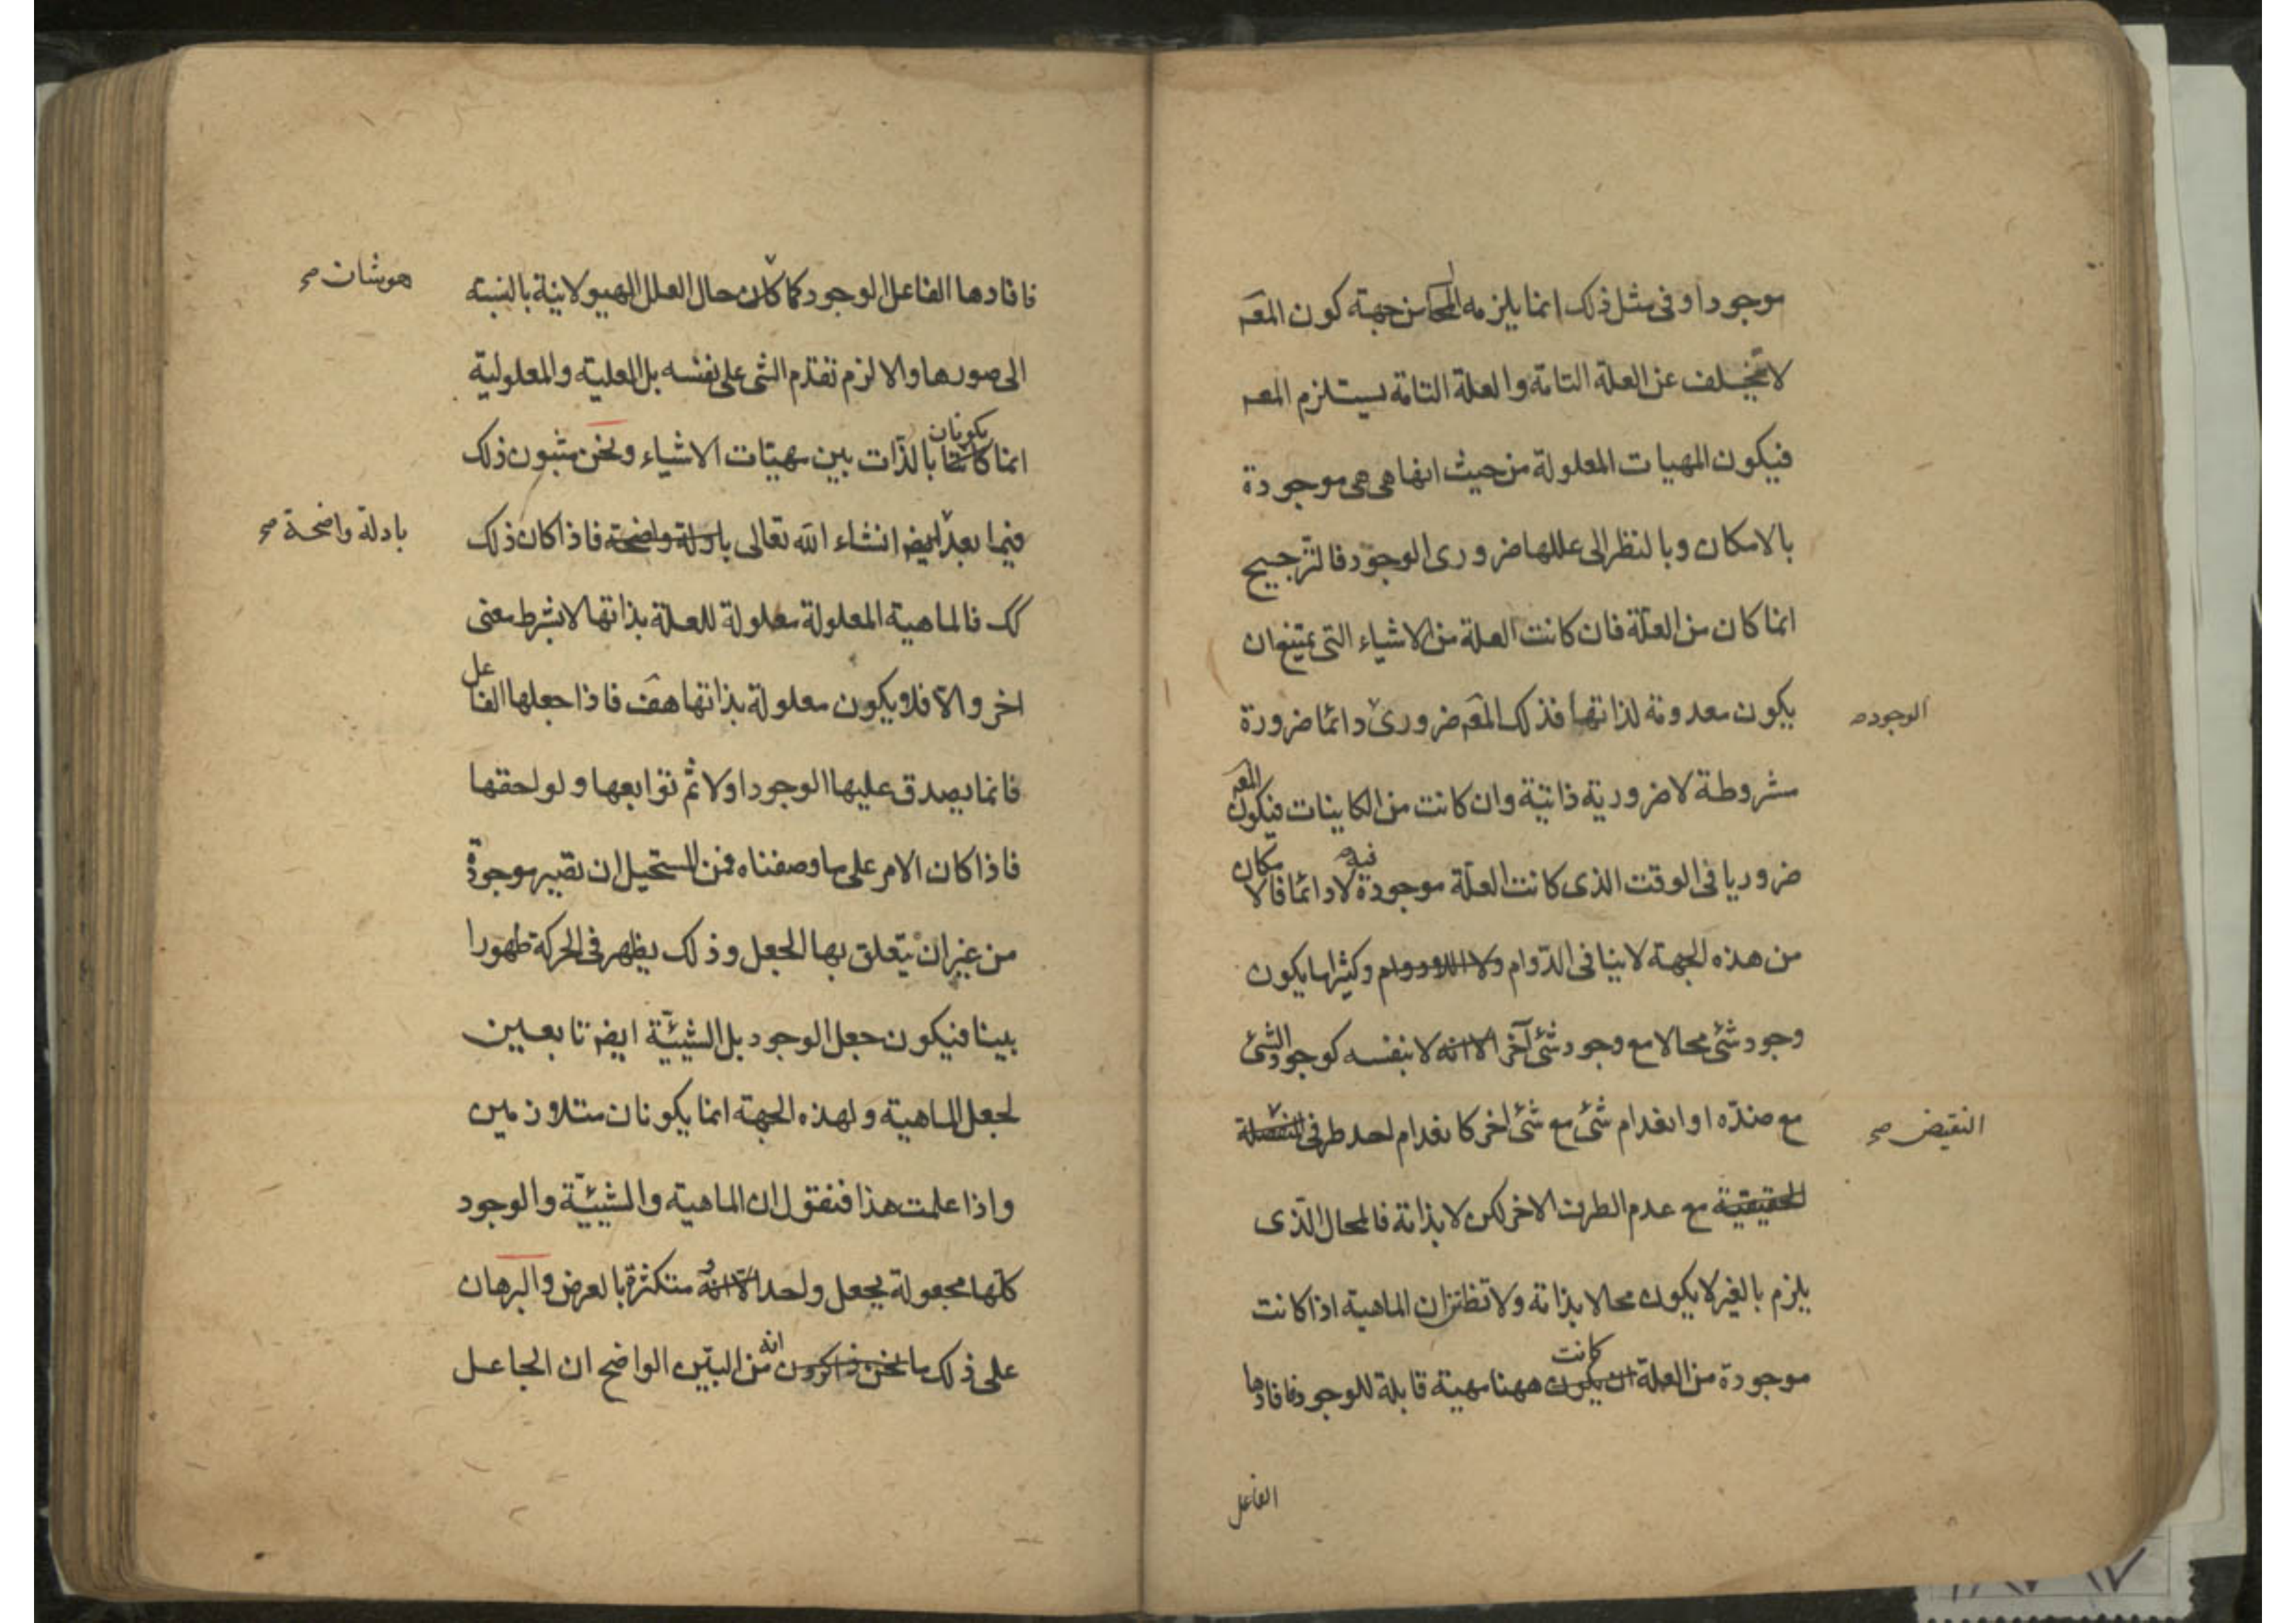 موجودا و فی مثل ذلک انما یلزمه المحا من جهة کون المعہ
لا تتخلف عن العلة التامة و العلة التامة یستلزم المعہ
فیکون المهیات المعلولة من حیث انها هی هی موجودة
بالامکان و بالنظر الی عللها ضروری الوجود فالترجیح
انما کان من العلّة فان کانت العلة من الاشیاء التی یمتنع ان
یکون معدومة لذاتها فذلک المعہ ضروری دائما ضرورة
الوجود صح
مشروطة لا ضروریة ذاتیة و ان کانت من الکاینات فیکون المعہ
ضروریا فی الوقت الذی کانت العلّة فیه موجودة لا دائما فالامکان
من هذه الجهة لا ینافی الدّوام ولا اللادوام و کثیرا ما یکون
وجود شئ محالا مع وجود شئ آخر الا انه لا بنفسه کوجود الشئ
مع ضدّه او انعدام شئ مع شئ اخر کانعدام احد طرفی المنفصلة
النقیض صح
الحقیقیة مع عدم الطرف الاخر لکن لا بذاته فالمحال الّذی
یلزم بالغیر لا یکون محالا بذاته و لا تظنن ان الماهیة اذا کانت
موجودة من العلة ان یکون کانت ههنا مهیة قابلة للوجود فافادها
الفاعل
فافادها الفاعل الوجود کما کان حال العلل الهیولانیة بالنسبة
هوشات صح
الی صورها و الا لزم تقدّم الشئ علی نفسه بل العلیة و المعلولیة
انما کانتا یکونان بالذّات بین مهیّات الاشیاء و نحن مثبتون ذلک
فیما بعد ایضا انشاء الله تعالی بادلة واضحة فاذا کان ذلک
بادلة واضحة صح
کک فالماهیة المعلولة معلولة للعلّة بذاتها لا بشرط معنی
اخر و الّا فلا یکون معلولة بذاتها هف فاذا جعلها الفاعل
فانما یصدق علیها الوجود اولا ثم توابعها و لواحقها
فاذا کان الامر علی ما وصفناه فمن المستحیل ان تصیر موجودة
من غیر ان یتعلق بها الجعل و ذلک یظهر فی الحرکة ظهورا
بینا فیکون جعل الوجود بل الشیئیّة ایضا تابعین
لجعل الماهیة و لهذه الجهة انما یکونان متلازمین
و اذا علمت هذا فنقول ان الماهیة و الشیئیّة و الوجود
کلّها مجعولة بجعل واحد الا انه متکثرة بالعرض و البرهان
علی ذلک ما نحن ذاکرون انه من البیّن الواضح ان الجاعل